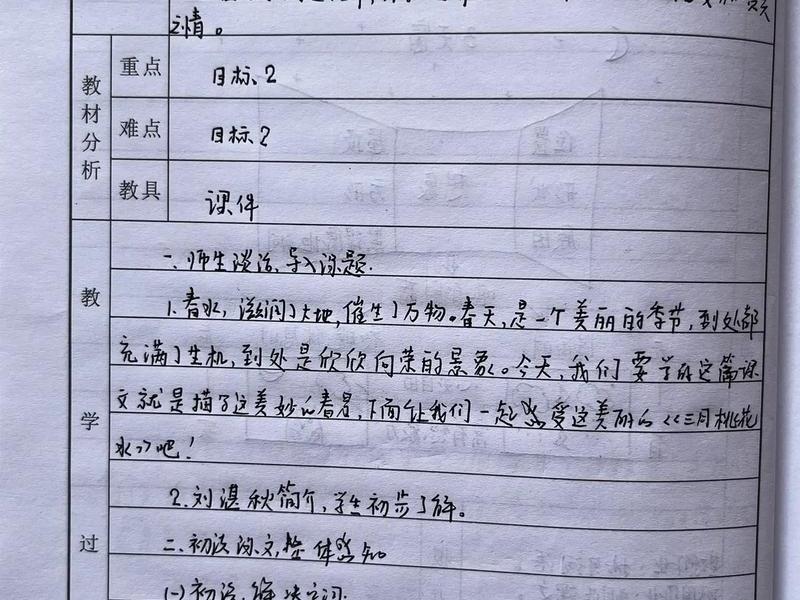 之情。
教材分析
重点 目标、2
难点 目标2
教具 课件
教学过
一、师生谈话,导入课题.
1.春水,滋润了大地,催生了万物。春天,是一个美丽的季节,到处都
充满了生机,到处是欣欣向荣的景象。今天,我们要学的这篇课
文就是描写这美妙的春景,下面让我们一起感受这美丽的《三月桃花
水》吧!
2.刘湛秋简介,学生初步了解。
二、初读课文,整体感知
(一)初读,解决字词